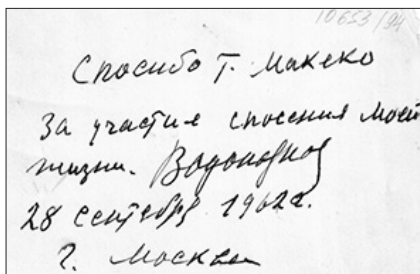 10653/94
Спасибо т. Макеко
За участие спосения моей
жизни. Водопо
28 сентября 1962г.
г. Москва